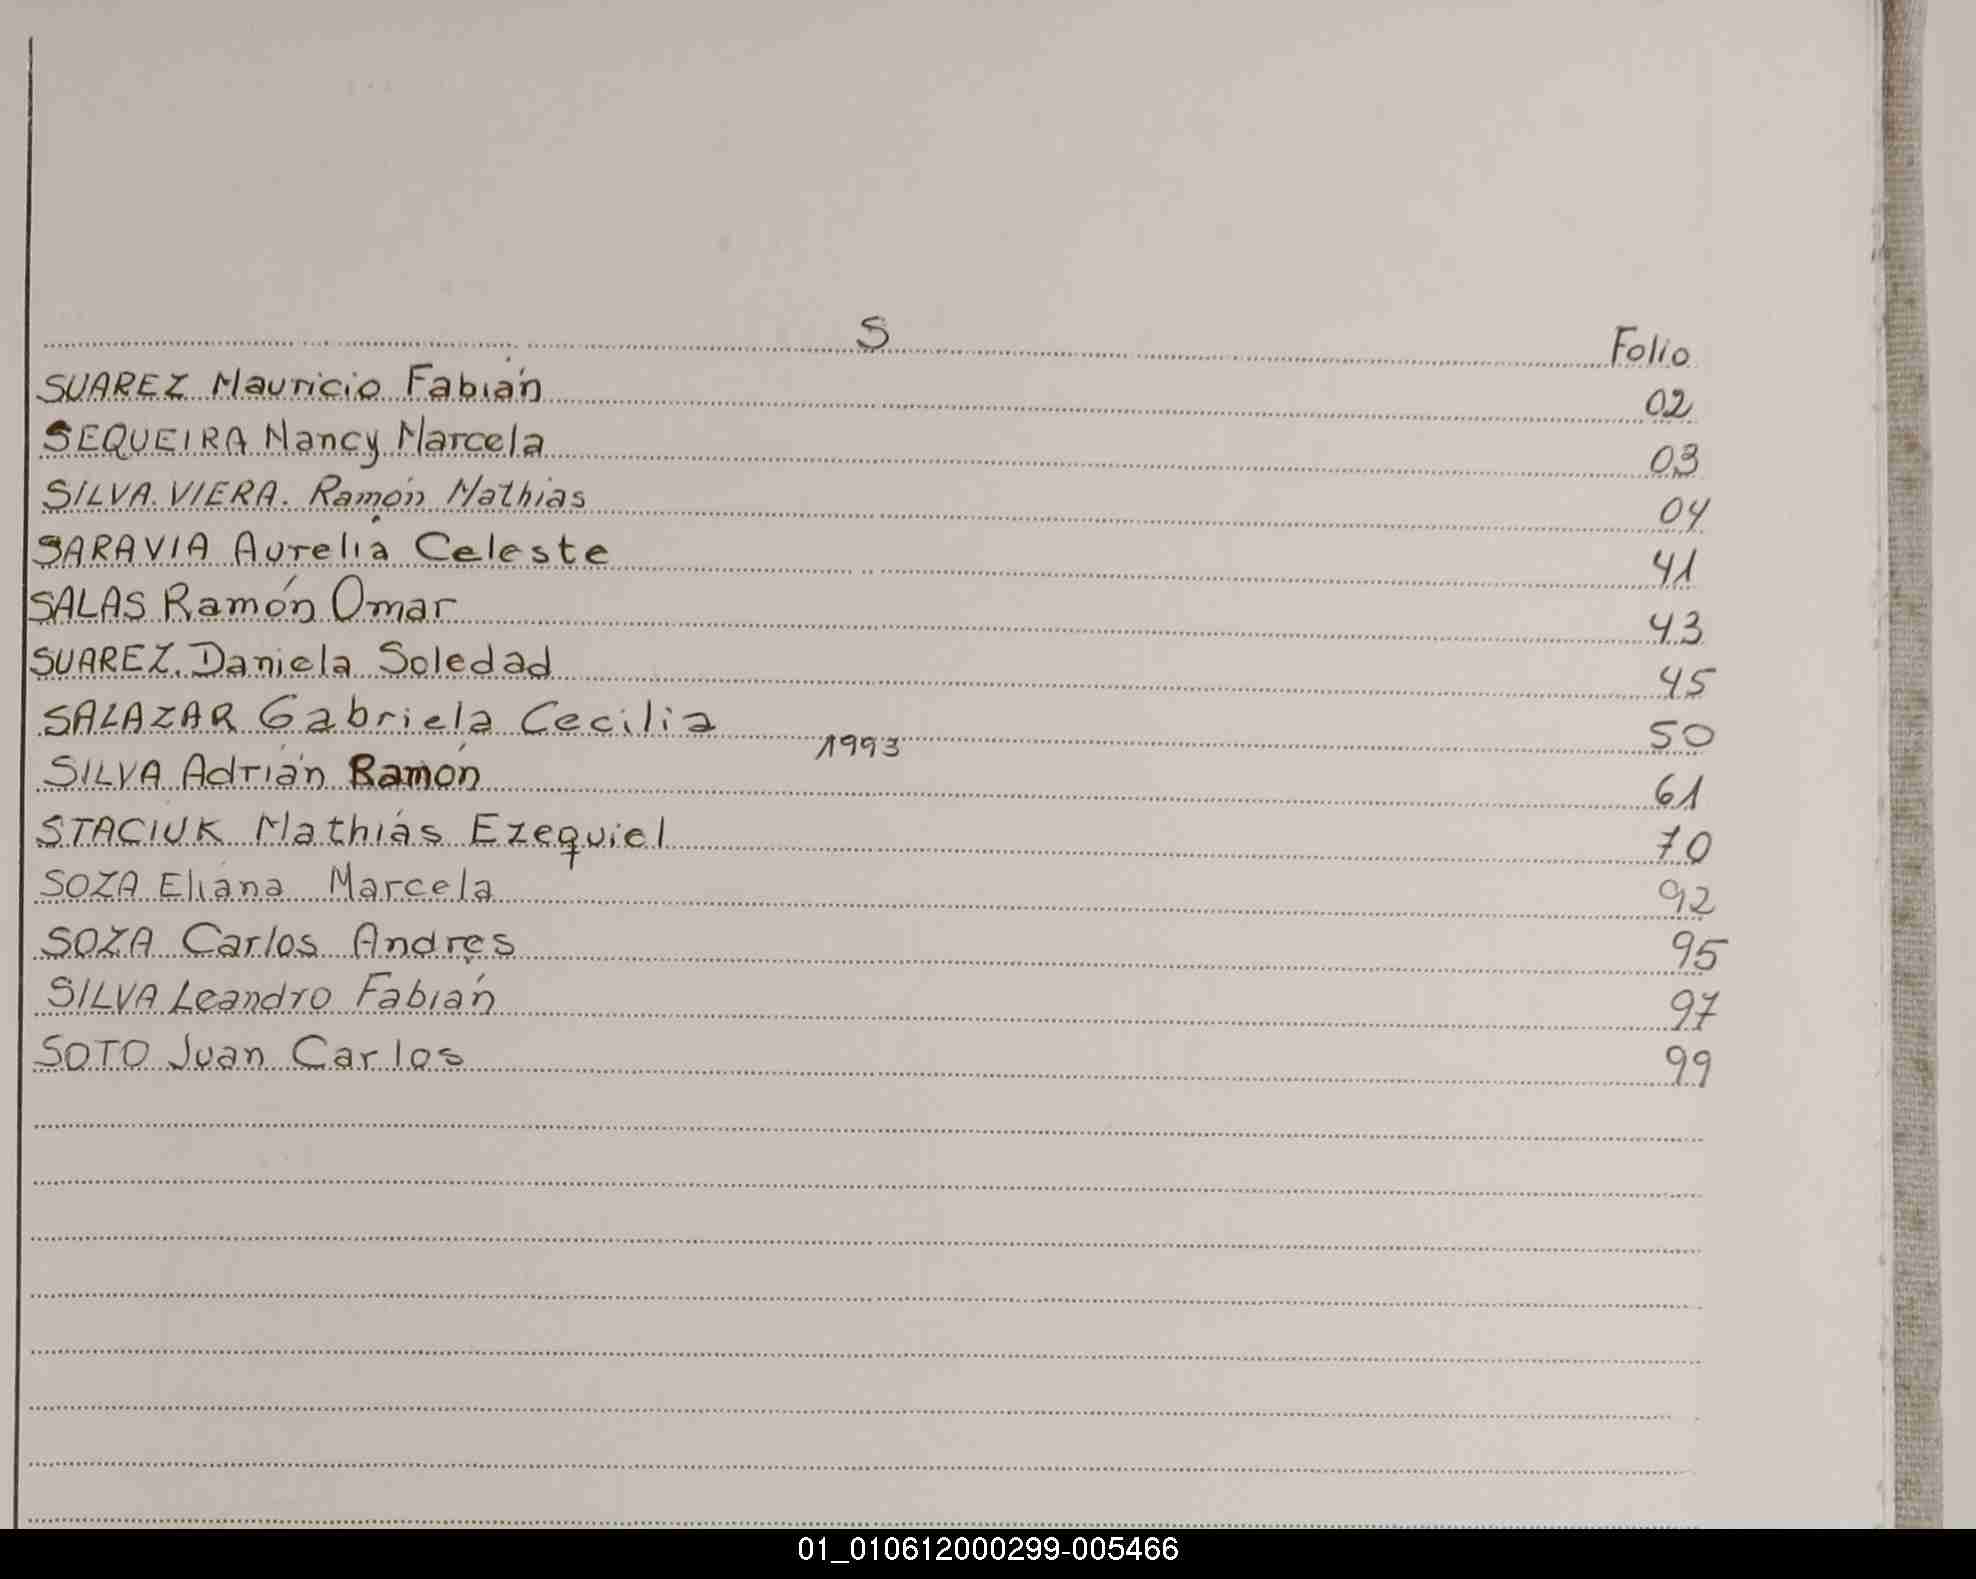 S Folio
SUAREZ Mauricio Fabián 02
SEQUEIRA Nancy Marcela 03
SILVA VIERA. Ramón Mathias 04
SARAVIA Aurelia Celeste 41
SALAS Ramón Omar 43
SUAREZ. Daniela Soledad 45
SALAZAR Gabriela Cecilia 50
1993
SILVA Adrián Ramón 61
STACIUK Mathiás Ezequiel 70
SOZA Eliana Marcela 92
SOZA Carlos Andres 95
SILVA Leandro Fabián 97
SOTO Juan Carlos 99
01_010612000299-005466